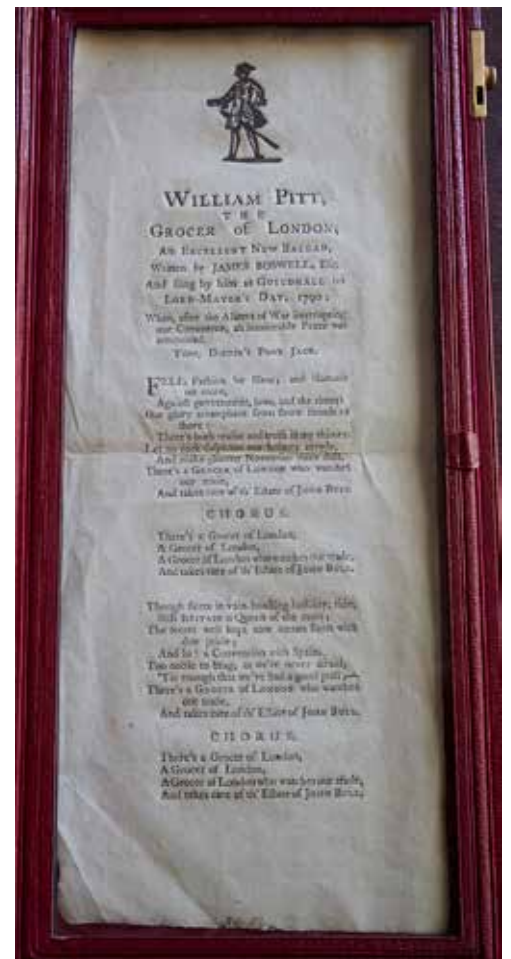 WILLIAM PITT,
THE
GROCER of LONDON,
AN EXCELLENT NEW BALLAD,
Written by JAMES BOSWELL, Esq.
And sung by him at GUILDHALL on
LORD-MAYOR'S DAY, 1790;
When, after the Alarms of War interrupting
our Commerce, an honourable Peace was
announced.
TUNE, DIBDIN'S POOR JACK.
Faction be silent, and clamour
no more,
Against government, laws, and the
Our glory triumphant from
shore;
There's both and in my
Let no dark our
And make November
There's a GROCER of LONDON who watches
our trade,
And takes care of th' Estate of JOHN BULL.
CHORUS.
There's a Grocer of London,
A Grocer of London,
A Grocer of London who watches our trade,
And takes care of th' Estate of JOHN BULL.
Though in vain
Still BRITAIN is Queen of the main;
The secret well kept now comes forth with
due
And lo! a Convention with Spain.
Too noble to brag, as we're never afraid,
'Tis enough that we've had a good pull
There's a GROCER of LONDON who watches
our trade,
And takes care of th' Estate of JOHN BULL.
CHORUS.
There's a Grocer of London,
A Grocer of London,
A Grocer of London who watches our trade,
And takes care of th' Estate of JOHN BULL.